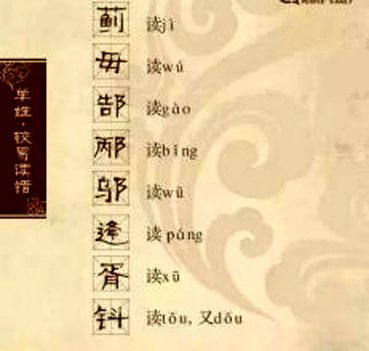 单姓·较易读错
蓟 读jì
毋 读wú
郜 读gào
邴 读bǐng
邬 读wū
逄 读páng
胥 读xū
钭 读tǒu, 又dǒu